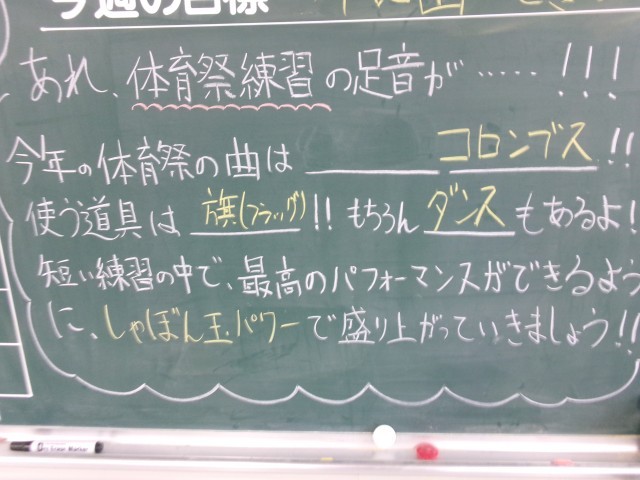 今週の目標
あれ、体育祭練習の足音が……!!!
今年の体育祭の曲は コロンブス!!
使う道具は 旗(フラッグ)!! もちろん ダンスもあるよ!
短い練習の中で、最高のパフォーマンスができるよう
に、しゃぼん玉パワーで盛り上がっていきましょう!!